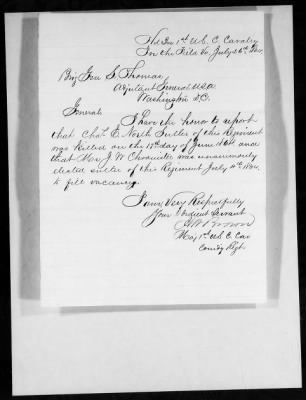 Hd Qrs 1st U.S.C. Cavalry
In the Field Va. July 26th 1864.
Brig Gen L. Thomas,
Adjutant General U.S.A.
Washington D.C.
General:
I have the honor to report
that Chas. E. North Sutler of this Regiment
was killed on the 17th day of June 1864 and
that Mr. J. W. was unanimously
elected sutler of this Regiment July 4th 1864
to fill vacancy.
I am Very Respectfully
Your Obedient Servant
Maj 1st U.S.C. Cav
Comdg Regt.